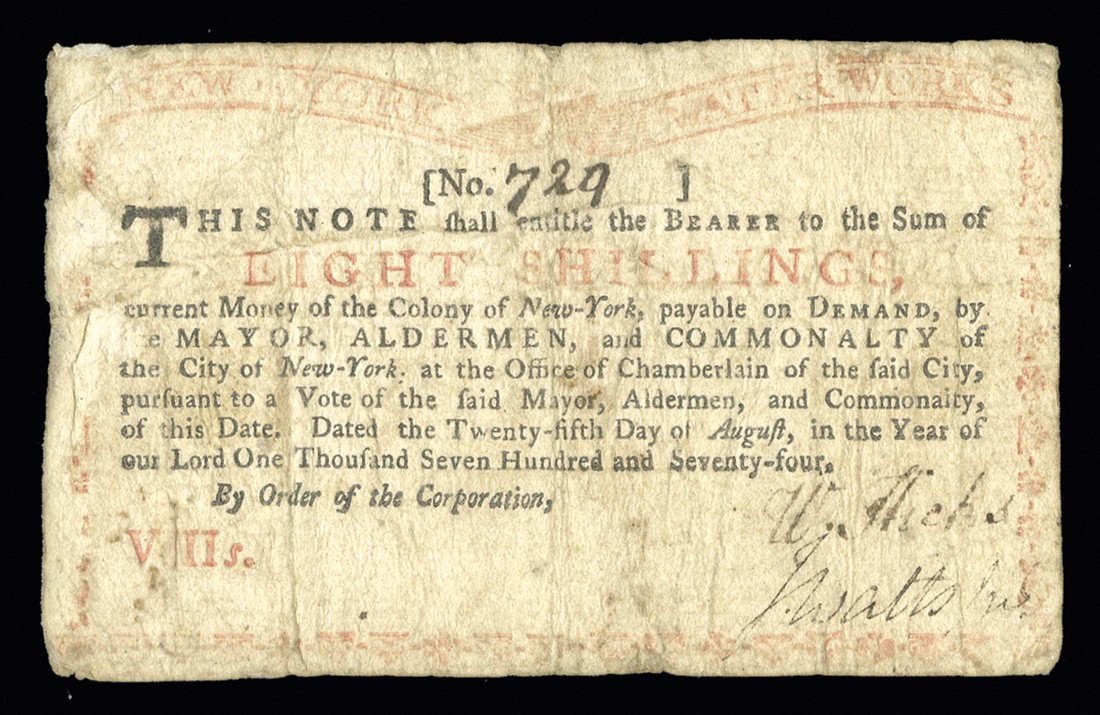 NEW-YORK WATER WORKS
[No. 729 ]
THIS NOTE ſhall entitle the BEARER to the Sum of
EIGHT SHILLINGS,
current Money of the Colony of New-York, payable on DEMAND, by
the MAYOR, ALDERMEN, and COMMONALTY of
the City of New-York, at the Office of Chamberlain of the ſaid City,
purſuant to a Vote of the ſaid Mayor, Aldermen, and Commonalty,
of this Date. Dated the Twenty-fifth Day of Auguſt, in the Year of
our Lord One Thouſand Seven Hundred and Seventy-four.
By Order of the Corporation,
W. Hicks
VIIIs.
J Watts Jur.